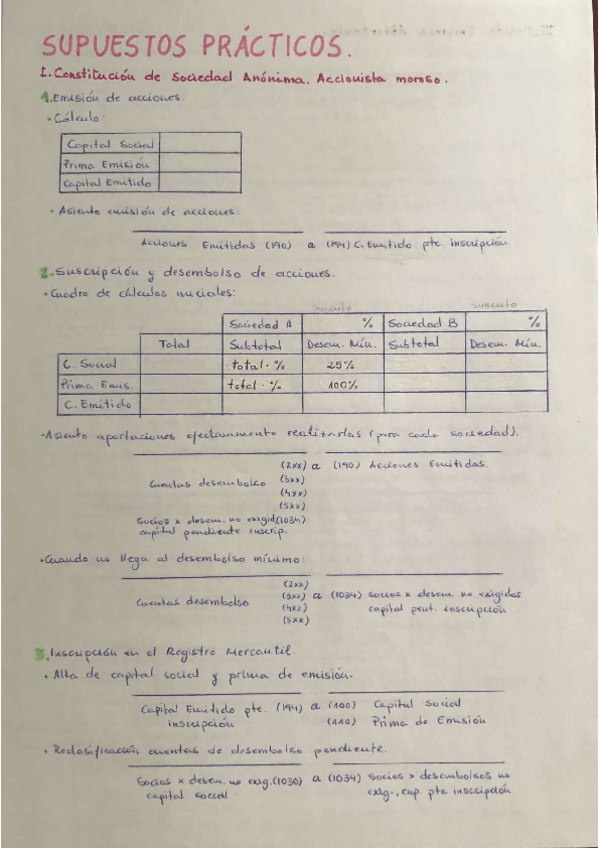 SUPUESTOS PRÁCTICOS.
I. Constitución de Sociedad Anónima. Accionista moroso.
1. Emisión de acciones.
• Cálculo:
Capital Social
Prima Emisión
Capital Emitido
• Asiento emisión de acciones:
Acciones Emitidas (190) a (194) C. Emitido pte. inscripción
2. Suscripción y desembolso de acciones.
• Cuadro de cálculos iniciales:
Suscrito Suscrito
Sociedad A % Sociedad B %
Total Subtotal Desem. Mín. Subtotal Desem. Mín.
C. Social total · % 25%
Prima Emis. total · % 100%
C. Emitido
• Asiento aportaciones efectivamente realizadas (para cada sociedad).
(2xx) a (190) Acciones Emitidas.
Cuentas desembolso (3xx)
(4xx)
(5xx)
Socios x desem. no exigid. (1034)
capital pendiente inscrip.
• Cuando no llega al desembolso mínimo:
(2xx)
Cuentas desembolso (3xx) a (1034) Socios x desem. no exigidos
(4xx) capital pent. inscripción
(5xx)
3. Inscripción en el Registro Mercantil.
• Alta de capital social y prima de emisión.
Capital Emitido pte. (194) a (100) Capital Social
inscripción (110) Prima de Emisión
• Reclasificación cuentas de desembolso pendiente.
Socios x desem. no exig. (1030) a (1034) Socios x desembolsos no
capital social exig., cap. pte inscripción